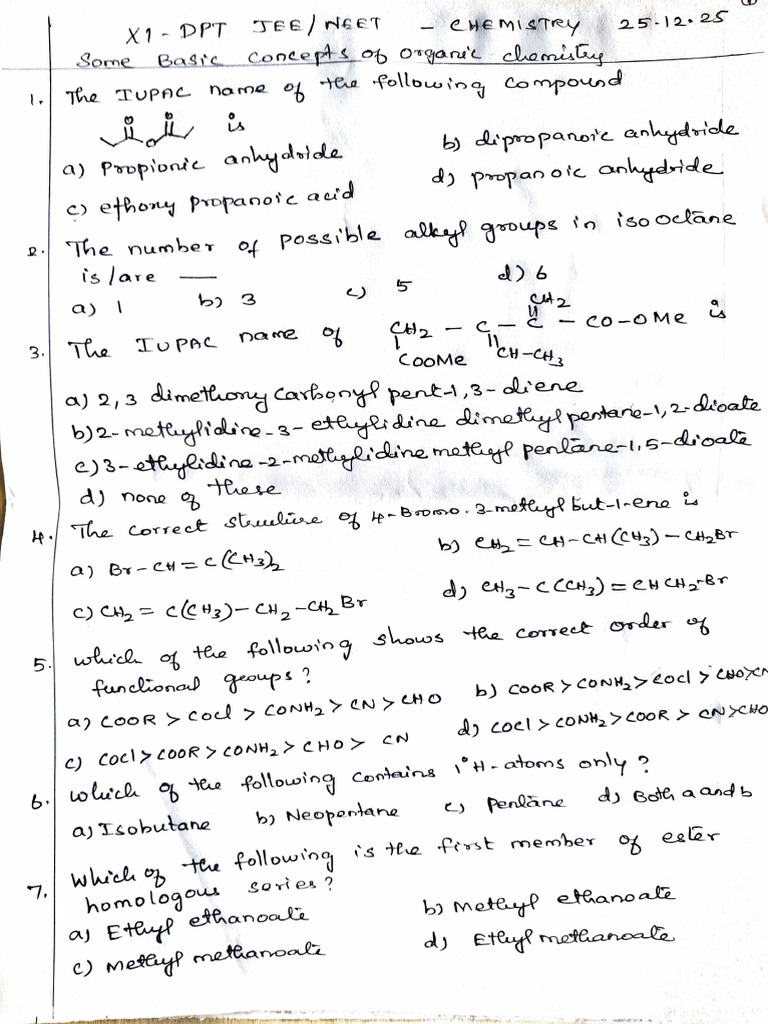 X1 - DPT JEE/NEET - CHEMISTRY 25.12.25 ①
Some Basic Concepts of Organic chemistry
1. The IUPAC name of the following compound
O O
O is
a) Propionic anhydride b) dipropanoic anhydride
c) ethoxy propanoic acid d) propanoic anhydride
2. The number of possible alkyl groups in isooctane
is/are ―
a) 1 b) 3 c) 5 d) 6
3. The IUPAC name of CH2 - C - C - CO-OMe is
CH2
COOMe CH-CH3
a) 2,3 dimethoxy carbonyl pent-1,3-diene
b) 2-methylidine-3-ethylidine dimethyl pentane-1,2-dioate
c) 3-ethylidine-2-methylidine methyl pentane-1,5-dioate
d) none of these
4. The correct structure of 4-Bromo.3-methyl but-1-ene is
a) Br-CH=C(CH3)2 b) CH2=CH-CH(CH3)-CH2Br
c) CH2=C(CH3)-CH2-CH2Br d) CH3-C(CH3)=CHCH2-Br
5. which of the following shows the correct order of
functional groups?
a) COOR > COCl > CONH2 > CN > CHO b) COOR > CONH2 > COCl > CHO > CN
c) COCl > COOR > CONH2 > CHO > CN d) COCl > CONH2 > COOR > CN > CHO
6. which of the following contains 1°H-atoms only?
a) Isobutane b) Neopentane c) Pentane d) Both a and b
7. Which of the following is the first member of ester
homologous series?
a) Ethyl ethanoate b) Methyl ethanoate
c) Methyl methanoate d) Ethyl methanoate